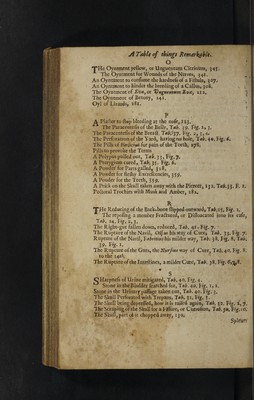 A Table of things Remarkable.
O
THe Oyntment yellow, or Unguentum Citrinum, 345.
The Oyntment for Wounds of the Nerves, 341.
An Oyntment to consume the hardness of a Fistula, 307.
An Oyntment to hinder the breeding of a Callus, 308.
The Oyntment of
The Oyntment of Betony, 241.
Oyl of Lizards, 281.
P
A Plaster to stop bleeding at the nose, 123.
The Paracentesis of the Belly, Tab. 39. Fig. 2, 3.
The Paracentesis of the Breast, Tab.
The Perforation of the Yard, having no hole, Tab. 40. Fig. 6.
The Pills of for pain of the Teeth, 278.
Pills to provoke the Terms
A Polypus pulled out, Tab. 33, Fig. 7.
A Pterygium cured, Tab. 33. Fig. 6.
A Powder for Pains galled, 318.
A Powder for fleshy Excrescencies, 359.
A Powder for the Teeth, 559.
A Prick on the Skull taken away with the Pincers, 131. Tab. 33. F. 1.
Pectoral Troches with Musk and Amber, 281.
R
THe Reducing of the Back-bone slipped outward, Tab. 25, Fig. 1.
The reposing a member Fractured, or Dislocated into its case, Tab. 24. Fig. 2, 3.
The Right-gut fallen down, reduced, Tab. 41. Fig. 7.
The Rupture of the Navil, his way of Cure, Tab. 33. Fig. 7.
Rupture of the Navil, his milder way, Tab. 38, Fig. 8. Tab. 39. Fig. 1.
The Rupture of the Guts, the way of Cure, Tab. 40. Fig. 8. to the 14th.
The Rupture of the Entestines, a milder Cure, Tab. 38. Fig.
S
SHarpness of Urine mitigated, Tab. 40. Fig. 4.
Stone in the Bladder searched for, Tab. 40. Fig. 1, 2.
Stone in the Urinary passage taken out, Tab. 40. Fig. 5.
The Skull Perforated with Trepans, Tab. 31. Fig. 5.
The Skull being depressed, how it is raised again, Tab. 32. Fig. 6, 7.
The Scraping of the Skull for a Fissure, or Contusion, Tab. 30, Fig. 10.
The Skull, part of it chopped away, 130,